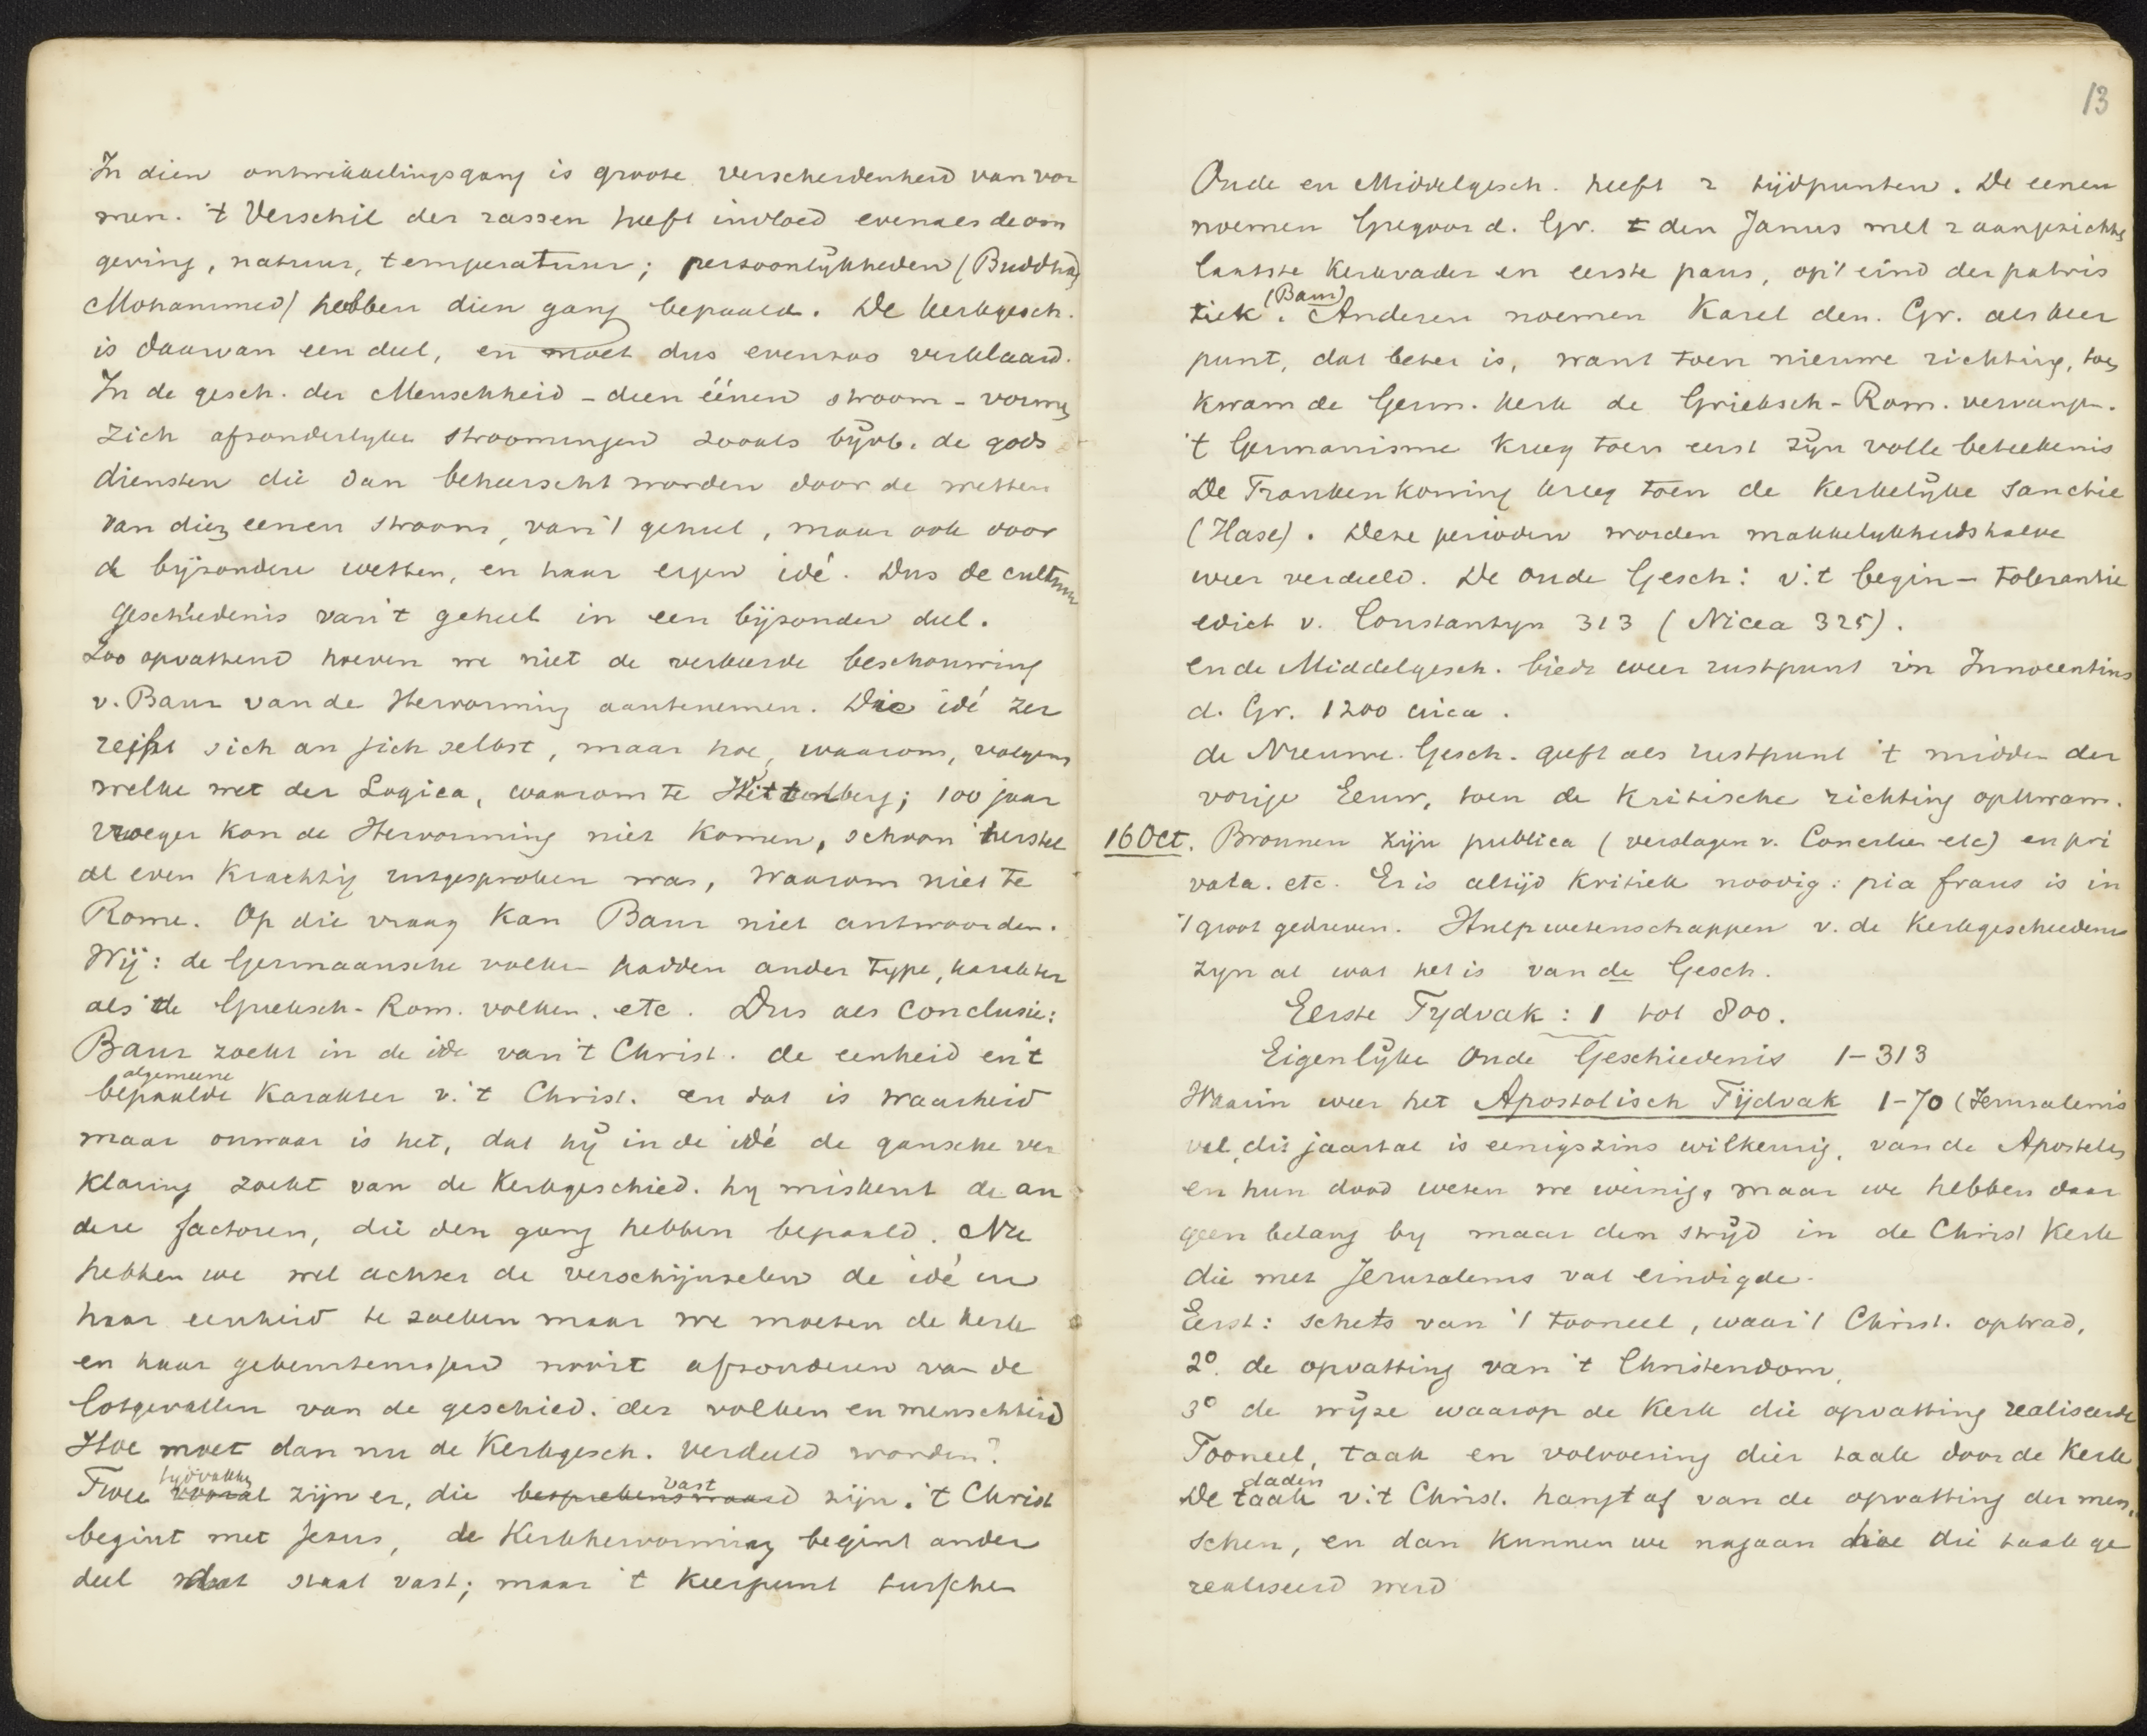 In dien ontwikkelingsgang is groote verscheidenheid van vor
men. 't Verschil der rassen heeft invloed evenals de om
geving, natuur, temperatuur; persoonlijkheden (Buddha,
Mohammed) hebben dien gang bepaald. De kerkgesch.
is daarvan een deel, en moet dus evenzoo verklaard.
In de gesch. der Menschheid – dien éénen stroom – vormen
zich afsonderlyke stroomingen zooals bijvb. de gods
diensten die dan beheerscht worden door de wetten
van dien eenen stroom, van 't geheel, maar ook door
de bijzondere wetten, en haar eigen idé. Dus de cultuur
geschiedenis van 't geheel in een bijzonder deel.
Zoo opvattend hoeven we niet de verkeerde beschouwing
v. Baur van de Hervorming aantenemen. Die idé zer
reifst sich an sich selbst, maar hoe, waarom, volgens
welke wet der Logica, waarom te Wittenberg; 100 jaar
vroeger kon de Hervorming niet komen, schoon 't herstel
al even krachtig uitgesproken was, waarom niet te
Rome. Op die vraag kan Baur niet antwoorden.
Wij: de Germaansche volken hadden ander type, karakter
als de Grieksch-Rom. volken. etc. Dus als conclusie:
Baur zoekt in de idé van 't Christ. de eenheid en 't
algemeene
bepaalde karakter v. 't Christ. en dat is waarheid
maar onwaar is het, dat hij in de idé de gansche ver
klaring zoekt van de Kerkgeschied. hy miskent de an
dere factoren, die den gang hebben bepaald. Nu
hebben we wel achter de verschijnselen de idé en
haar eenheid te zoeken maar we moeten de kerk
en haar gebeurtenissen nooit afsonderen van de
lotgevallen van de geschied. der volken en menschheid
Hoe moet dan nu de Kerkgesch. verdeeld worden?
tydvakken vast
Twee vooral zijn er, die besprekenswaard zijn. 't Christ
begint met Jesus, de Kerkhervorming begint ander
deel dat staat vast; maar 't keerpunt tusschen
13
Oude en Middelgesch. heeft 2 tijdpunten. De eenen
noemen Gregoor d. Gr. den Janus met 2 aangezichten
laatste Kerkvader en eerste paus, op 't eind der patris
(Baur)
tiek. Anderen noemen Karel den. Gr. als keer
punt, dat beter is, want toen nieuwe richting, toen
kwam de Germ. kerk de Grieksch-Rom. vervangen.
't Germanisme kreeg toen eerst zijn volle beteekenis
De Frankenkoning kreeg toen de Kerkelijke sanctie
(Hase). Deze perioden worden makkelykheidshalve
weer verdeeld. De oude Gesch: v. 't begin – Tolerantie
edict v. Constantyn 313 (Nicea 325).
en de Middelgesch. biedt weer rustpunt in Innocentius
d. Gr. 1200 circa.
de Nieuwe. Gesch. geeft als rustpunt 't midden der
vorige Eeuw, toen de kritische richting opkwam.
16 Oct. Bronnen zijn publica (verslagen v. Concilien etc) en pri
vata. etc. Er is altijd kritiek noodig: pia fraus is in
't groot gedreven. Hulpwetenschappen v. de Kerkgeschiedenis
zyn al wat het is van de Gesch.
Eerste Tydvak: 1 tot 800.
Eigenlijke Oude Geschiedenis 1–313
Waarin weer het Apostolisch Tijdvak 1–70 (Jerusalems
val, dit jaartal is eenigszins willkeurig, van de Apostelen
en hun dood weten we weinig, maar we hebben daar
geen belang by maar den strijd in de Christ Kerk
die met Jerusalems val eindigde.
Eerst: schets van 't tooneel, waar 't Christ. optrad,
2o. de opvatting van 't Christendom,
3o de wijze waarop de Kerk die opvatting realiseerde
Tooneel, taak en volvoering dier taak door de Kerk
daden
De taak v. 't Christ. hangt af van de opvatting der men,
schen, en dan kunnen we nagaan hoe die taak ge
realiseerd werd